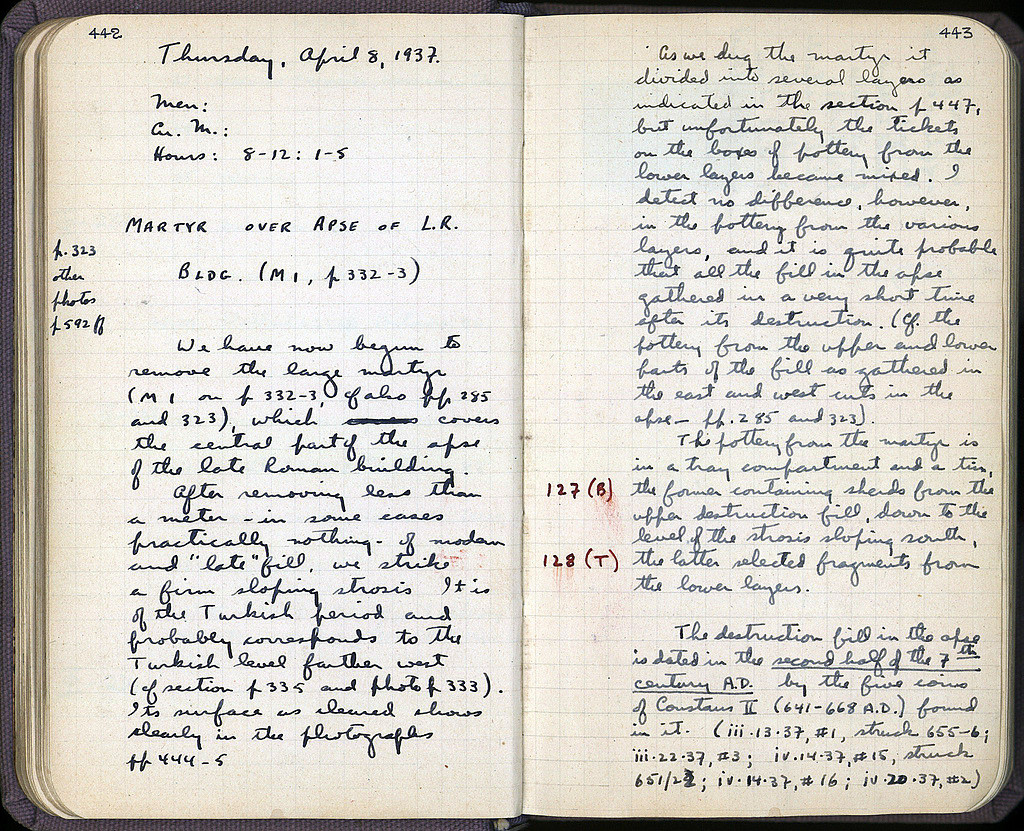 442
Thursday, April 8, 1937.
Men:
Cu. M.:
Hours: 8-12: 1-5
MARTYR OVER APSE OF L.R.
BLDG. (M1, p 332-3)
p. 323
other
photos
p 592 ff
We have now begun to
remove the large martyr
(M1 on p 332-3, cf also pp 285
and 323), which covers
the central part of the apse
of the late Roman building.
After removing less than
a meter - in some cases
practically nothing - of modern
and "late" fill, we strike
a firm sloping strosis It is
of the Turkish period and
probably corresponds to the
Turkish level farther west
(cf section p 335 and photo p 333).
Its surface as cleared shows
clearly in the photographs
pp 444-5
443
As we dug the martyr it
divided into several layers as
indicated in the section p 447,
but unfortunately the tickets
on the boxes of pottery from the
lower layers became mixed. I
detect no difference, however,
in the pottery from the various
layers, and it is quite probable
that all the fill in the apse
gathered in a very short time
after its destruction. (Cf. the
pottery from the upper and lower
parts of the fill as gathered in
the east and west cuts in the
apse - pp. 285 and 323).
The pottery from the martyr is
in a tray compartment and a tin,
127 (B) the former containing sherds from the
upper destruction fill, down to the
level of the strosis sloping south,
128 (T) the latter selected fragments from
the lower layers.
The destruction fill in the apse
is dated in the second half of the 7th
century A.D. by the five coins
of Constans II (641-668 A.D.) found
in it. (iii.13.37, #1, struck 655-6;
iii.22.37, #3; iv.14.37, #15, struck
651/2; iv.14.37, #16; iv.20.37, #2)